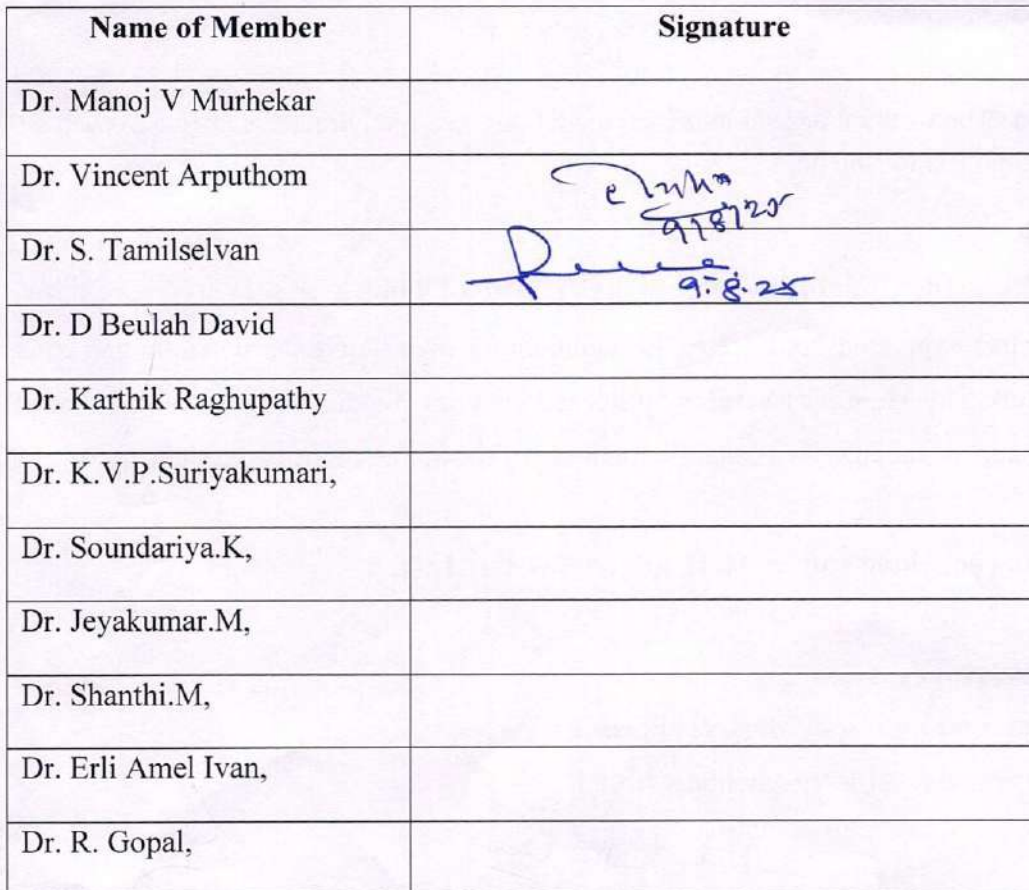 Name of Member Signature
Dr. Manoj V Murhekar
Dr. Vincent Arputhom
9/8/25
Dr. S. Tamilselvan
9.8.25
Dr. D Beulah David
Dr. Karthik Raghupathy
Dr. K.V.P.Suriyakumari,
Dr. Soundariya.K,
Dr. Jeyakumar.M,
Dr. Shanthi.M,
Dr. Erli Amel Ivan,
Dr. R. Gopal,